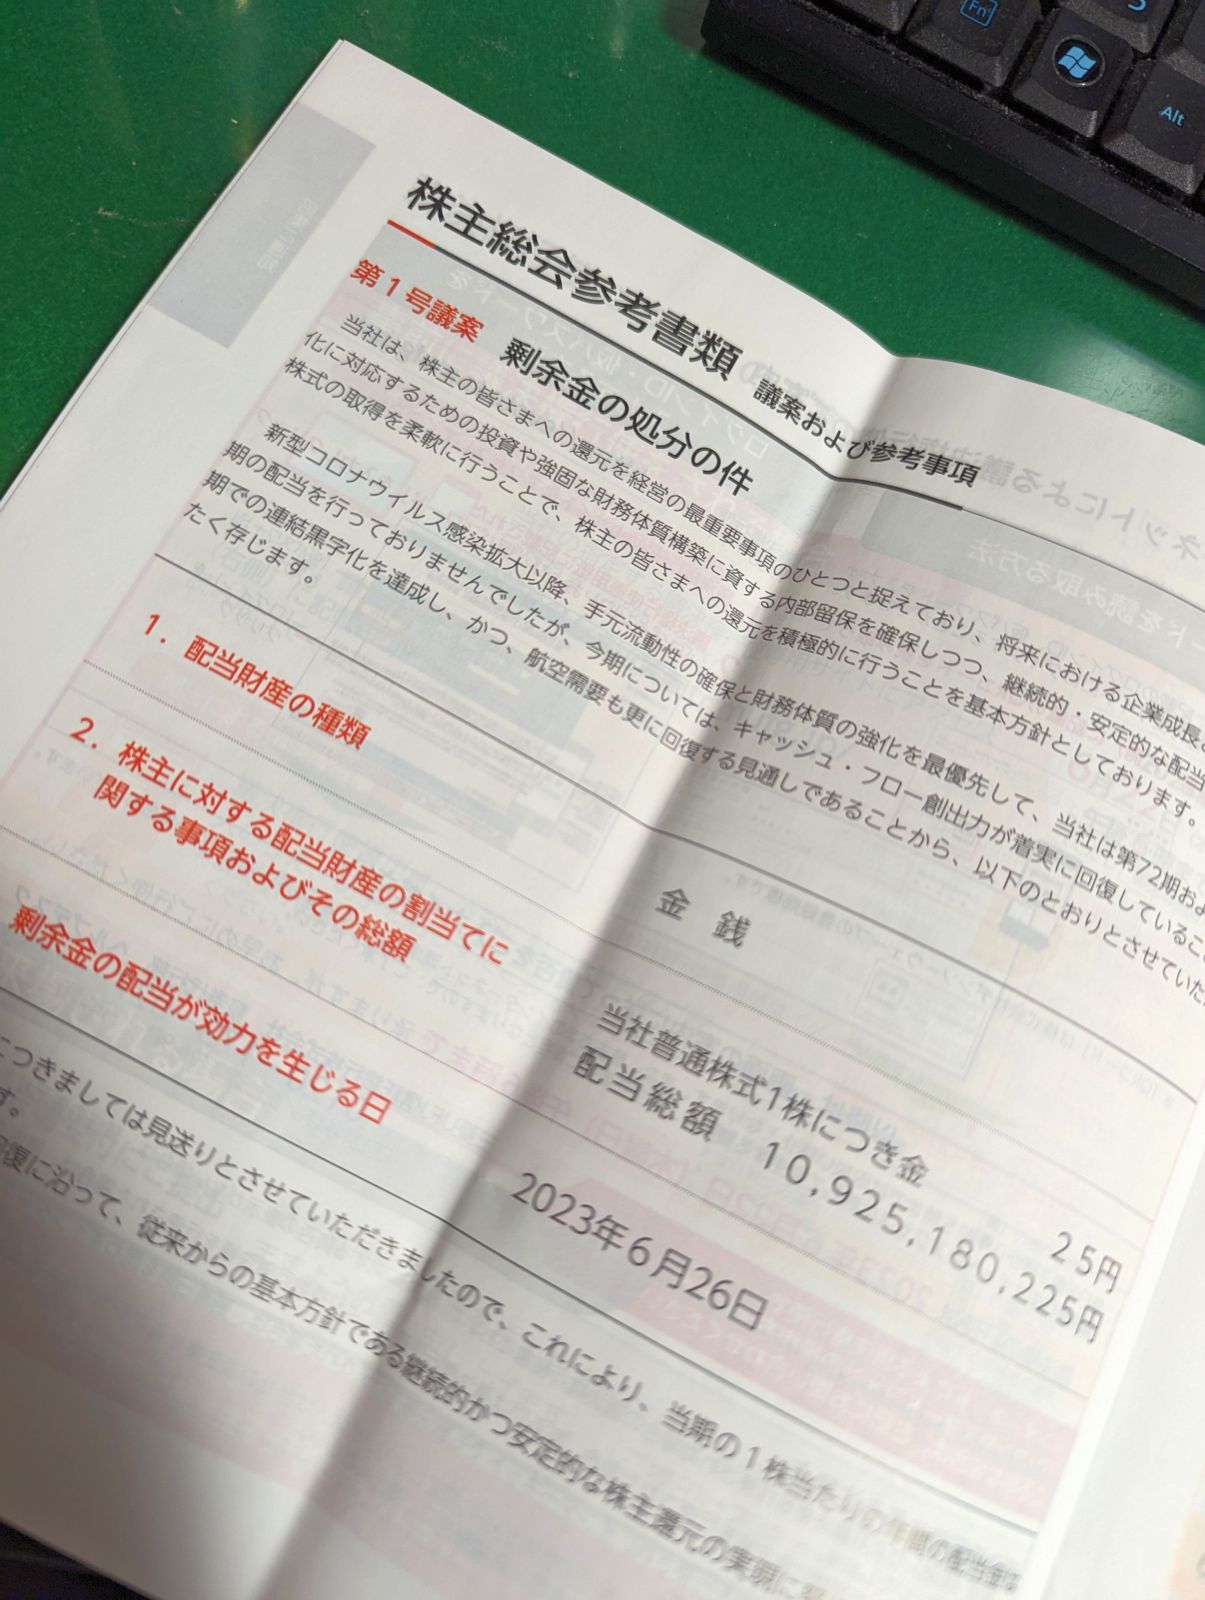 Fn
Alt
株主総会参考書類 議案および参考事項
第1号議案 剰余金の処分の件
当社は、株主の皆さまへの還元を経営の最重要事項のひとつと捉えており、将来における企業成長と
化に対応するための投資や強固な財務体質構築に資する内部留保を確保しつつ、継続的・安定的な配当
株式の取得を柔軟に行うことで、株主の皆さまへの還元を積極的に行うことを基本方針としております。
新型コロナウイルス感染拡大以降、手元流動性の確保と財務体質の強化を最優先して、当社は第72期およ
期の配当を行っておりませんでしたが、今期については、キャッシュ・フロー創出力が着実に回復しているこ
期での連結黒字化を達成し、かつ、航空需要も更に回復する見通しであることから、以下のとおりとさせていた
たく存じます。
1. 配当財産の種類
金 銭
2. 株主に対する配当財産の割当てに
関する事項およびその総額
当社普通株式1株につき金 25円
配当総額 10,925,180,225円
剰余金の配当が効力を生じる日
2023年6月26日
につきましては見送りとさせていただきましたので、これにより、当期の1株当たりの年間の配当金は
す。
回復に沿って、従来からの基本方針である継続的かつ安定的な株主還元の実現に